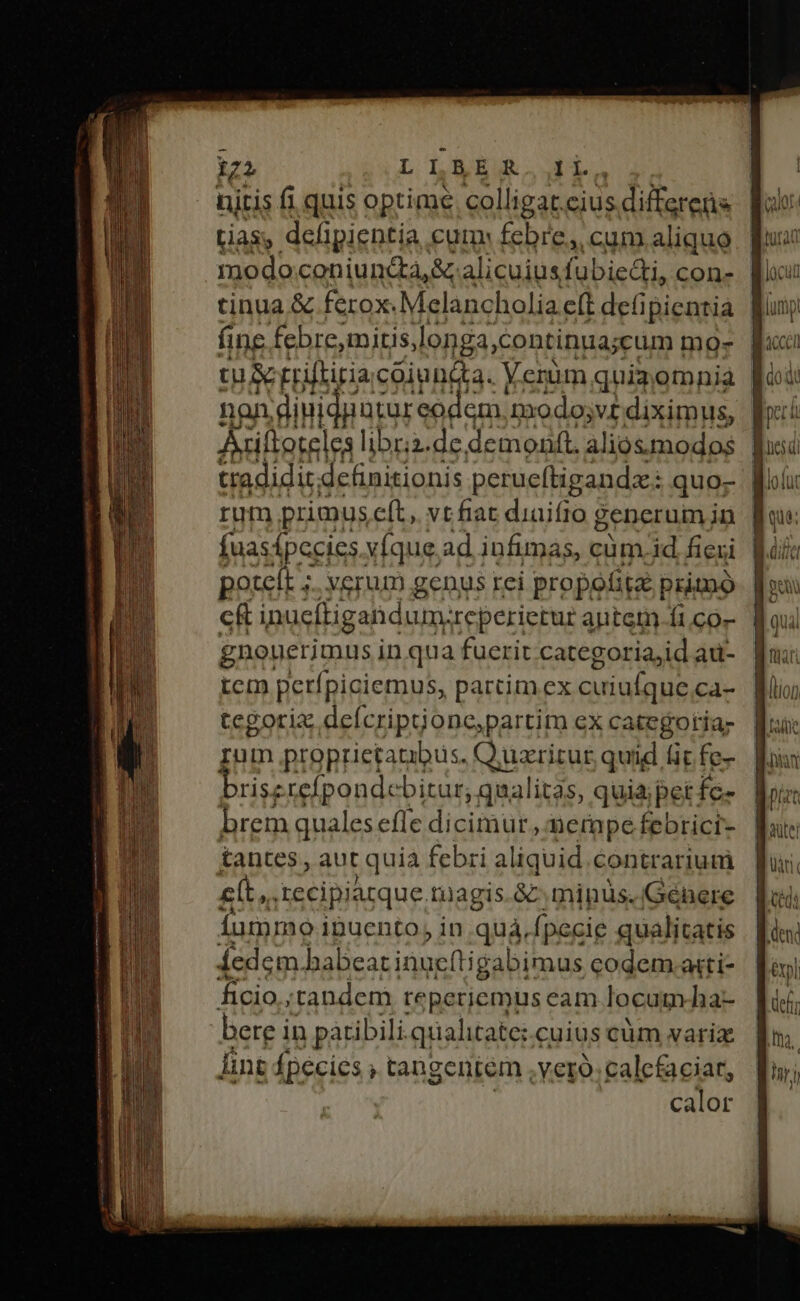 172 LIBER II.
nitis ſi quis optimè colligat eius differen-
tias, deſipientia cum febre, cum aliquo
modo coniuncta, & alicuius ſubiecti, con-
tinua & ferox. Melancholia eſt deſipientia
ſine febre, mitis, longa, continua; cum mo-
tu & triſtitia coiuncta. Verùm quia omnia
non diuiduntur eodem modo, vt diximus,
Ariſtoteles libr. 2. de demonſt. alios modos
tradidit definitionis perueſtigandæ: quo-
rum primus eſt, vt fiat diuiſio generum in
ſuas ſpecies vſque ad infimas, cùm id fieri
poteſt; verum genus rei propoſitæ primò
eſt inueſtigandum: reperietur autem ſi co-
gnouerimus in qua fuerit categoria, id au-
tem perſpiciemus, partim ex cuiuſque ca-
tegoriæ deſcriptione, partim ex categoria-
rum proprietatibus. Quæritur quid ſit fe-
bris: reſpondebitur, qualitas, quia per fe-
brem quales eſſe dicimur, nempe febrici-
tantes, aut quia febri aliquid contrarium
eſt, recipiatque magis & minùs. Genere
ſummo inuento, in quâ ſpecie qualitatis
ſedem habeat inueſtigabimus eodem arti-
ficio, tandem reperiemus eam locum ha-
bere in patibili qualitate: cuius cùm variæ
ſint ſpecies, tangentem verò calefaciat,
calor